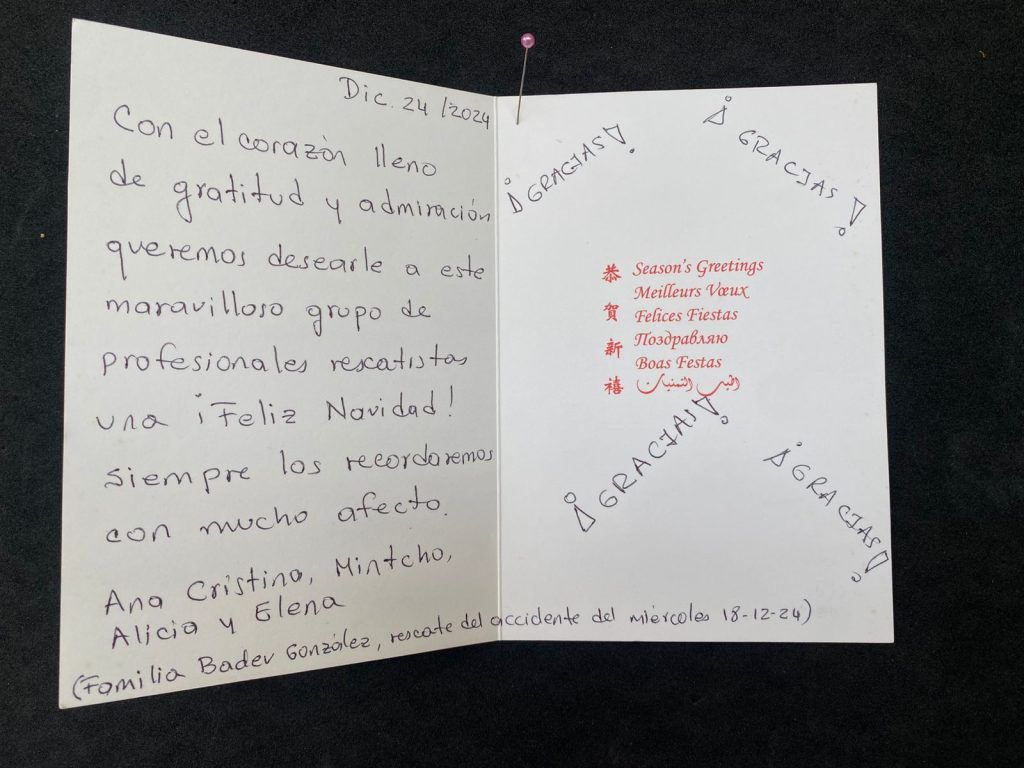 Dic. 24 / 2024
Con el corazón lleno
de gratitud y admiración
queremos desearle a este
maravilloso grupo de
profesionales rescatistas
una ¡Feliz Navidad!
siempre los recordaremos
con mucho afecto.
Ana Cristina, Mintcho,
Alicia y Elena
(Familia Badev González, rescate del accidente del miércoles 18-12-24)
¡GRACIAS!
¡GRACIAS!
恭賀新禧
Season's Greetings
Meilleurs Vœux
Felices Fiestas
Поздравляю
Boas Festas
¡GRACIAS!
¡GRACIAS!